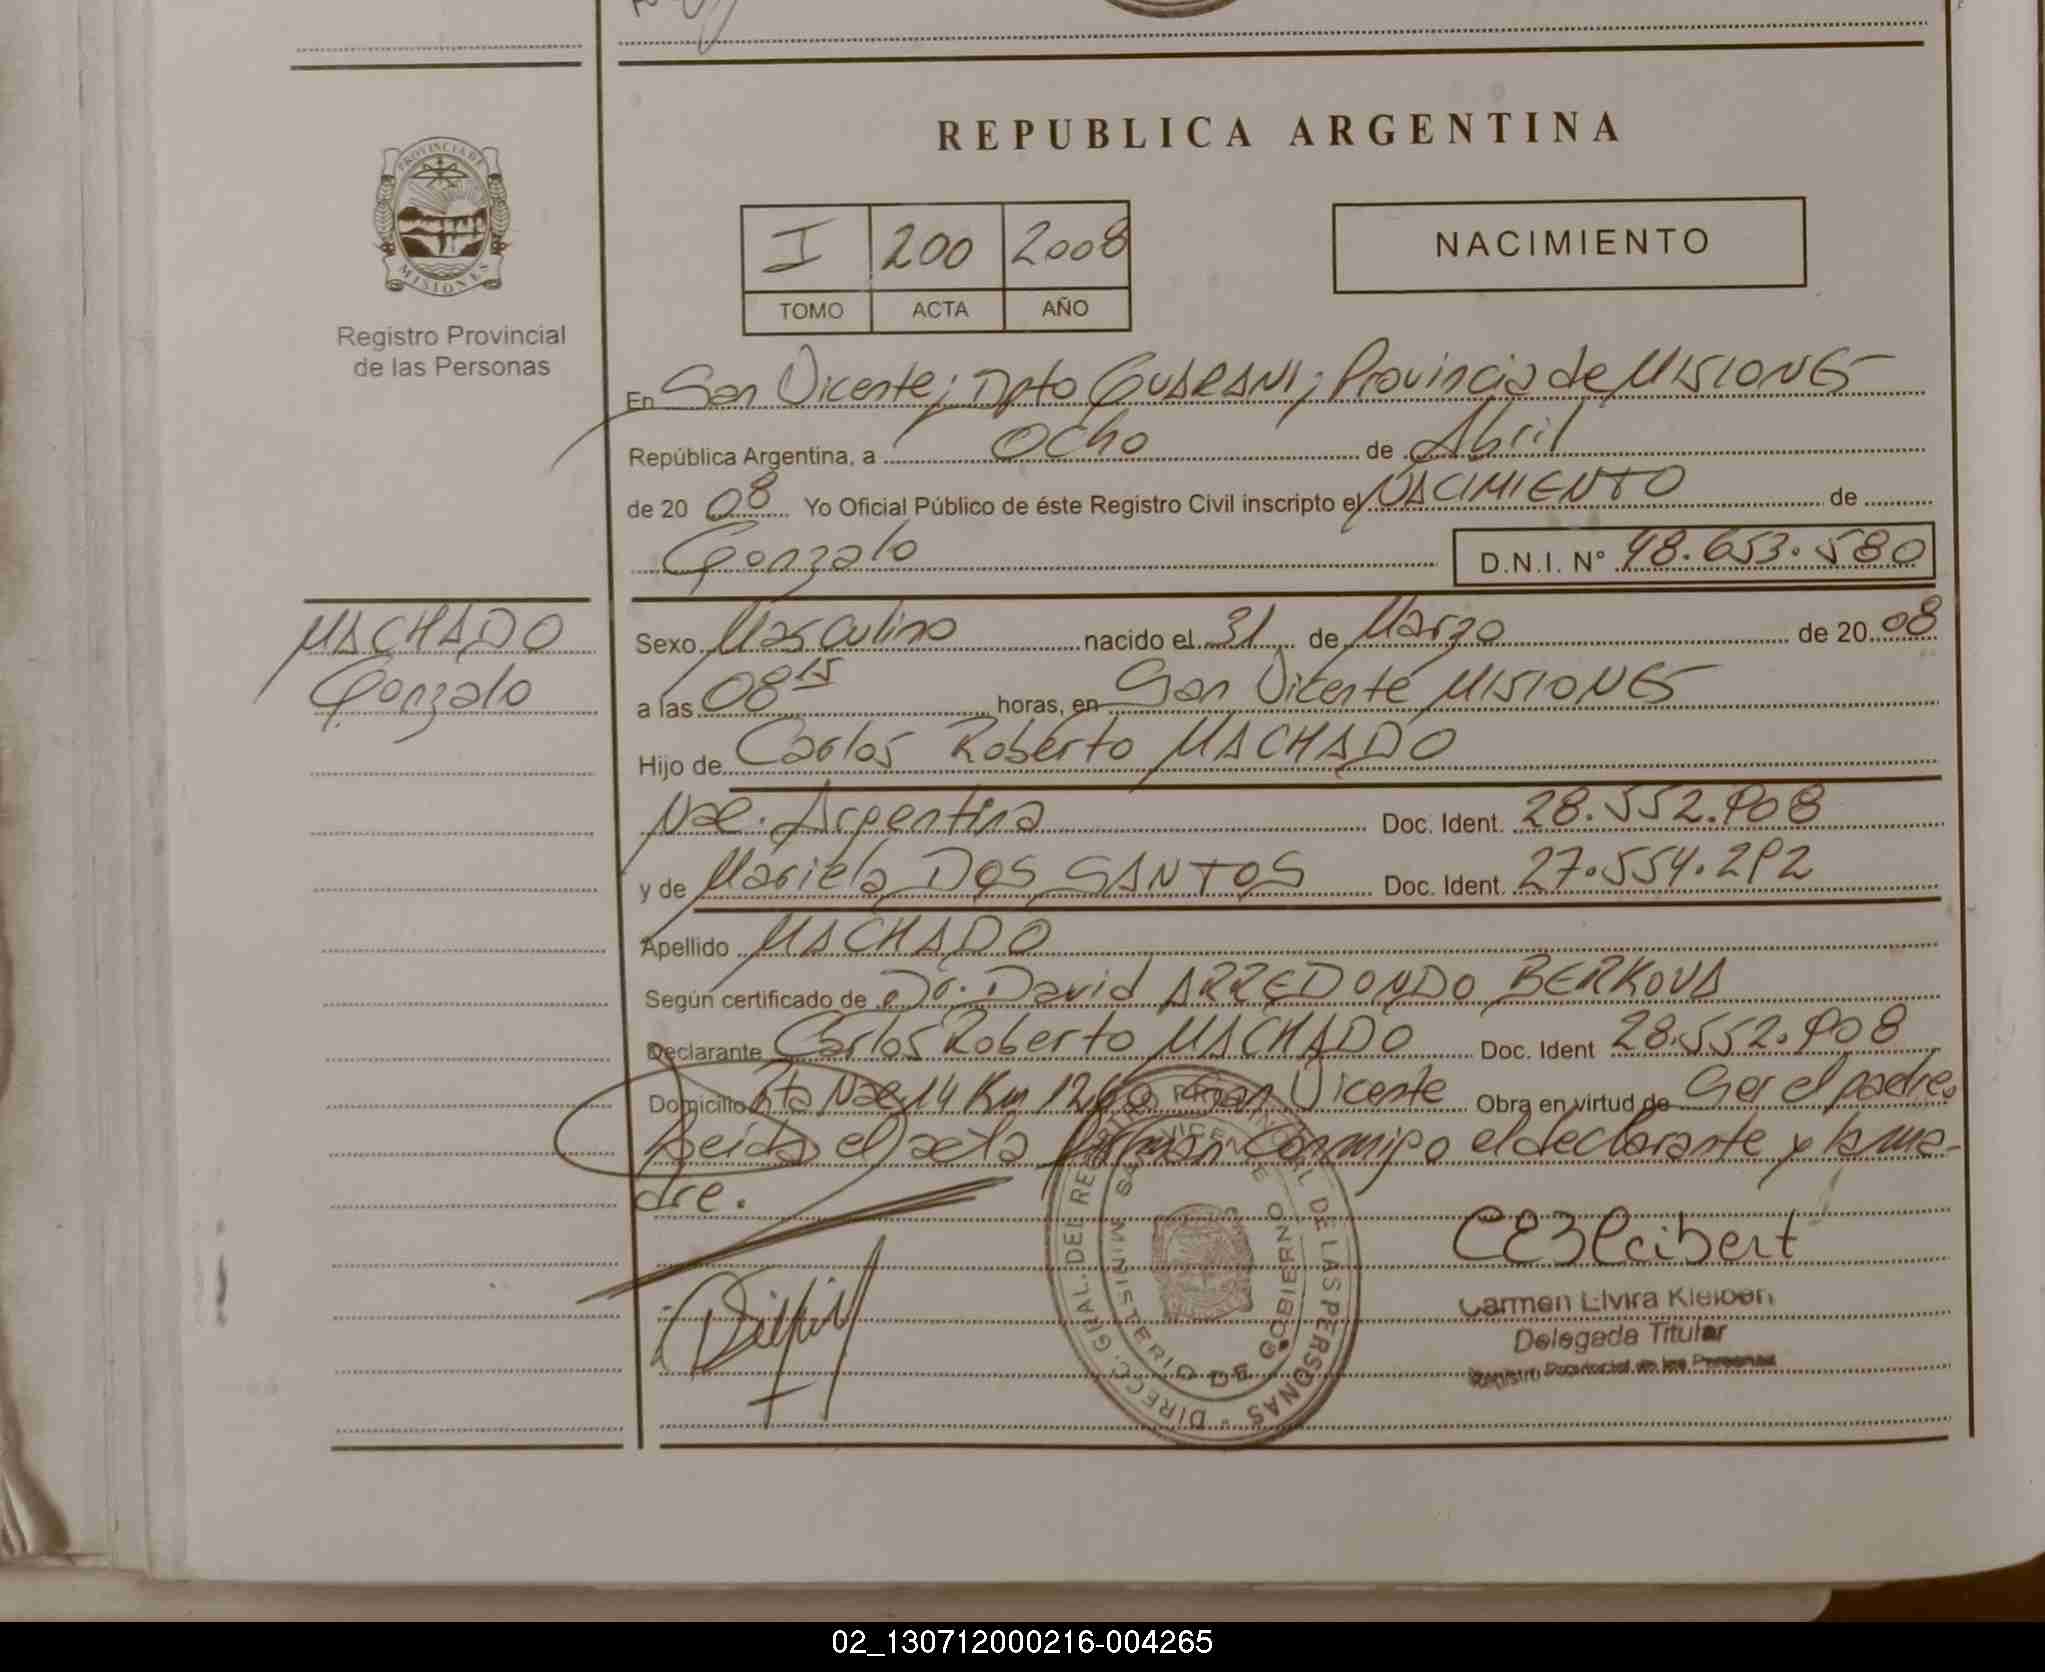 REPUBLICA ARGENTINA
PROVINCIA DE MISIONES
Registro Provincial
de las Personas
I 200 2008
TOMO ACTA AÑO
NACIMIENTO
En San Vicente; Dpto GUARANI; Provincia de MISIONES
República Argentina, a Ocho de Abril
de 20 08 Yo Oficial Público de éste Registro Civil inscripto el NACIMIENTO de
Gonzalo D.N.I. N° 48.653.580
MACHADO
Gonzalo
Sexo Masculino nacido el 31 de Marzo de 20 08
a las 08 15 horas, en San Vicente MISIONES
Hijo de Carlos Roberto MACHADO
Nac. Argentina Doc. Ident. 28.552.908
y de Mariela DOS SANTOS Doc. Ident. 27.554.292
Apellido MACHADO
Según certificado de Dr. David ARREDONDO BERKOVA
Declarante Carlos Roberto MACHADO Doc. Ident 28.552.908
Domicilio Rta Nac 14 Km San Vicente Obra en virtud de Ser el padre.
Leída el acta firman conmigo el declarante y la ma-
dre.
DIRECC. GRAL. DEL REG. PROVINCIAL DE LAS PERSONAS
MINISTERIO DE GOBIERNO
SAN VICENTE
CEKleibert
Carmen Elvira Kleibert
Delegada Titular
Registro Provincial de las Personas
02_130712000216-004265